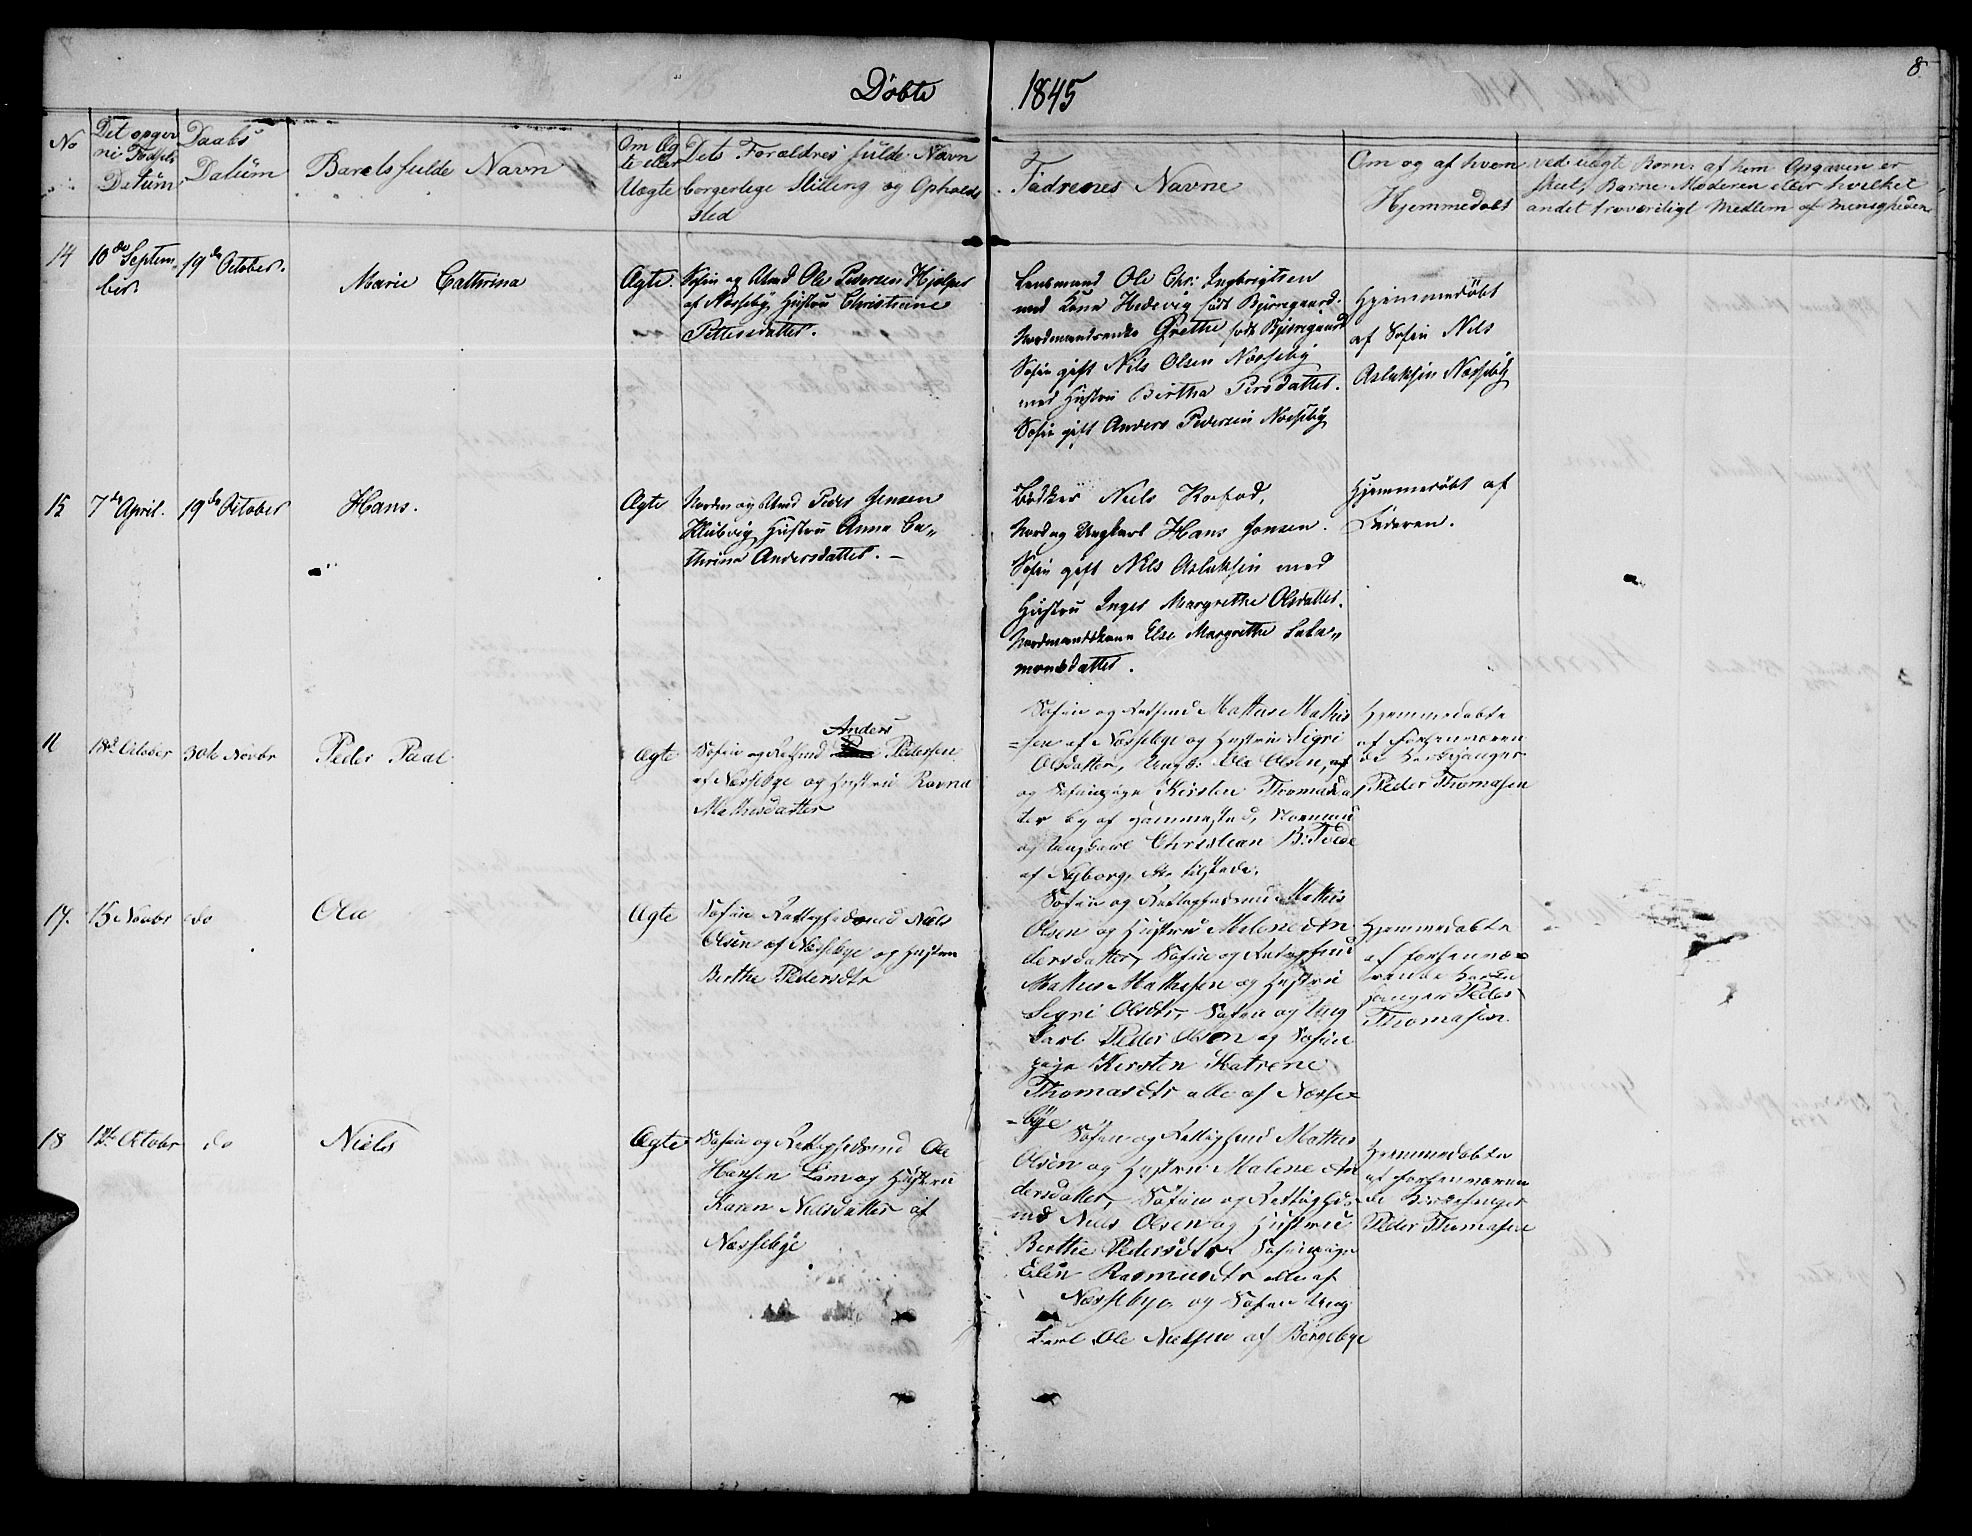 8
Døbte 1845
No
Det opgiv
ne Fødsels
Datum
Daabs
Datum
Barnets fulde Navn
Om Æg
te eller
Uægte
Dets Forældres fulde Navn
borgerlige Stilling og Opholds
sted
Fadrenes Navne
Om og af hvem
Hjemmedøbt
ved uægte Børn: af hvem Opgaven er
skeet, Barne-Moderen eller hvilket
andet troværdigt Medlem af Menigheden
14
10de Septem-
ber.
19de October.
Marie Cathrina
Ægte.
Søfin og Ole Pedersen Hjelper
af Næsseby Hustru Christiane
Pettersdatter.
Lensmand Ole Chr: Ingbrigtsen
med Kone Hedevig født Bjøregaard.
Nordmandsenke Grethe født Bjøregaard
Søfin gift Nils Olsen Næsseby
med Hustru Birtha Persdatter.
Søfin gift Anders Pedersen Næsseby
Hjemmedøbt
af Søfin Nils
Aslaksen Næsseby
15
7de April.
19de October
Hans.
Ægte
Peder Jensen
Klubvig Hustru Anna Ca-
thrina Andersdatter. –
Bødker Niels Kofod,
Nord og Ungkarl Hans Jonsen.
Søfin gift Nils Aslaksen med
Hustru Inger Margrethe Olsdatter.
Nordmandskone Else Margrethe Sala-
monsdatter.
Hjemmedøbt af
Faderen.
18de October
30te Novbr
Peder Paal
Ægte
Anders
Søfin og Pedersen
af Næssebye og Hustru Ravna
Mathisdatter
Søfin og Mathis Mathis
=sen af Næssebye og Hustru Sigri
Olsdatter, Ungk. Ole Olsen,
og Søfinpige Kirsten Thomasdat
ter
og Ungkarl Christian B: Tvede
af Nyborg,
Hjemmedøbte
af forhenværen
de Kirkesanger
Peder Thomasen
17.
15 Novbr
do
Ole
Ægte
Søfin Niels
Olsen af Næssebye og Hustru
Berthe Pedersdtr
Søfin og Mathis
Olsen og Hustru Malene An
dersdatter, Søfin og
Mathis Mathisen og Hustru
Sigri Olsdtr, Søfin og Ung
karl Peder Olsen og Søfin
pige Kirsten Katrene
Thomasdtr alle af Næsse=
=bye
Hjemmedøbte
af forhenvæ=
rende Kirke
sanger Peder
Thomasen
18
October
do
Niels
Ægte
Søfin og Ole
Hansen og Hustru
Karen Nielsdatter af
Næssebye
Søfin og Mathis
Olsen og Hustru Malene An
dersdatter, Søfin og
Niels Olsen og Hustru
Berthe Pedersdtr Søfinpige
Elen Rasmusdtr alle af
Næssebye og Søfin Ung
karl Ole Nielsen af Bergebye
Hjemmedøbte
af forhenværen
de Kirkesanger
Peder Thomasen